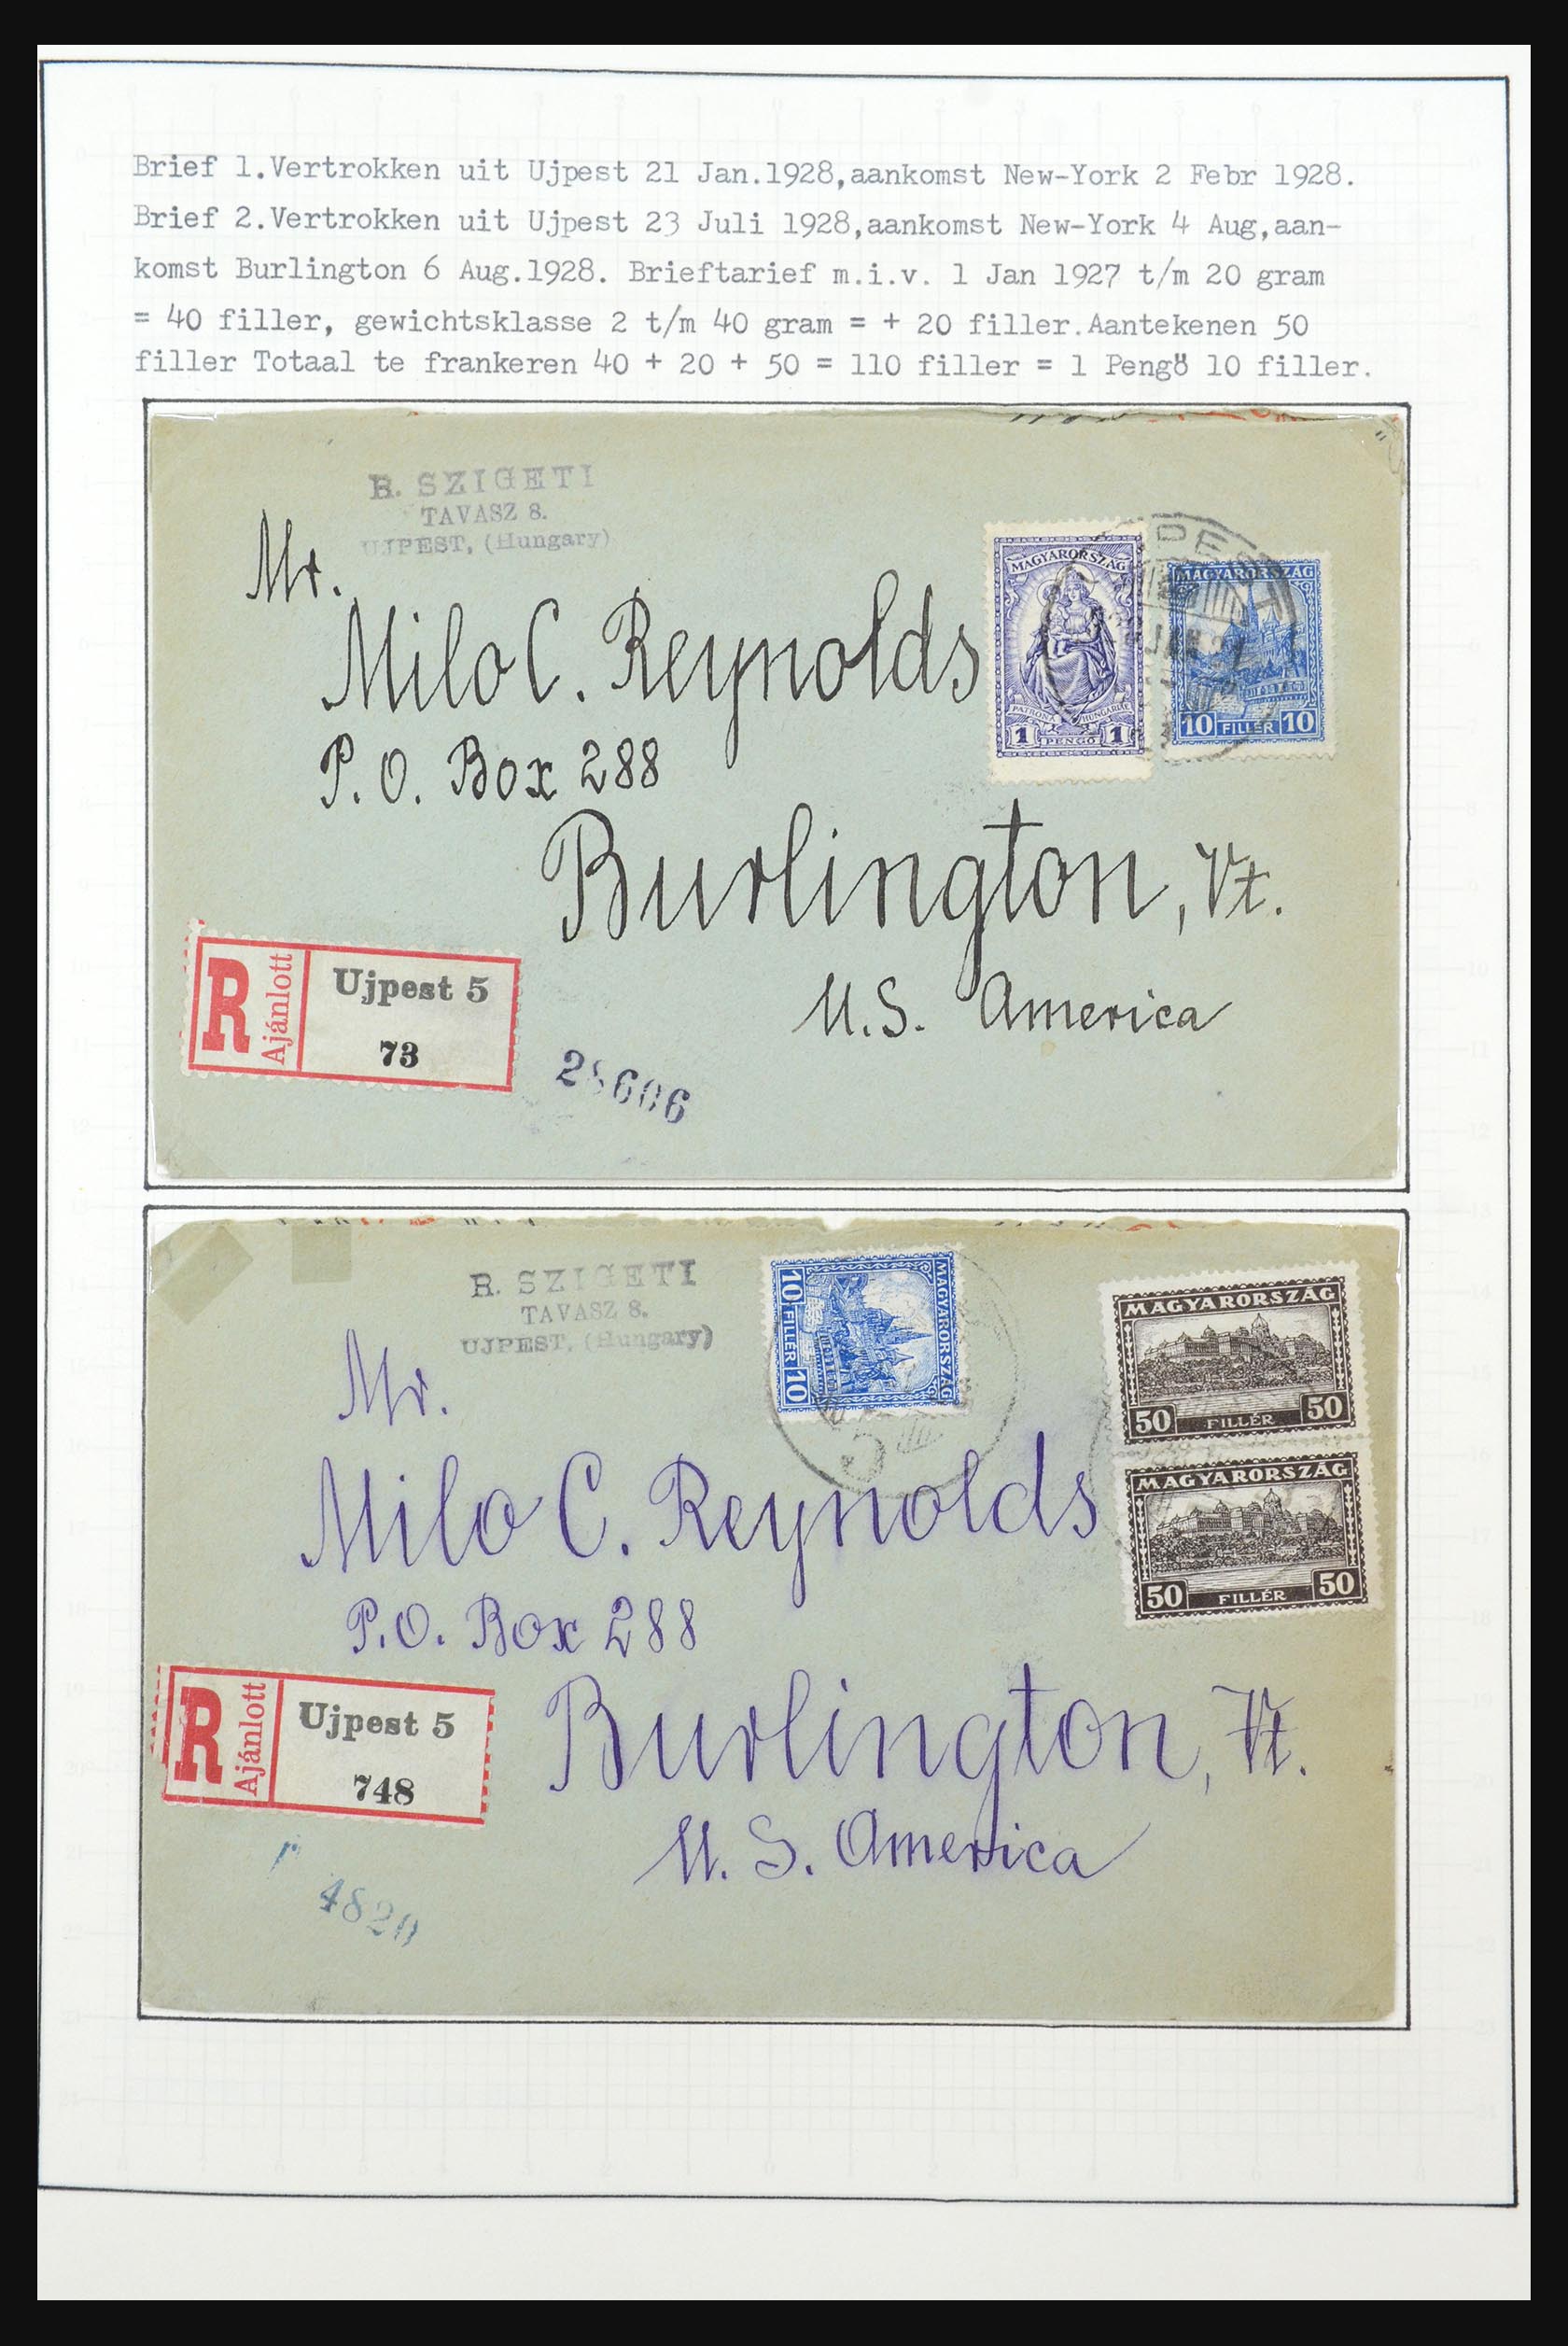 Brief 1.Vertrokken uit Ujpest 21 Jan.1928,aankomst New-York 2 Febr 1928.
Brief 2.Vertrokken uit Ujpest 23 Juli 1928,aankomst New-York 4 Aug,aan-
komst Burlington 6 Aug.1928. Brieftarief m.i.v. 1 Jan 1927 t/m 20 gram
= 40 filler, gewichtsklasse 2 t/m 40 gram = + 20 filler.Aantekenen 50
filler Totaal te frankeren 40 + 20 + 50 = 110 filler = 1 Pengö 10 filler.
R. SZIGETI
TAVASZ 8.
UJPEST, (Hungary)
Mr.
Milo C. Reynolds
P.O. Box 288
Burlington, Vt.
U.S. America
MAGYARORSZÁG
PATRONA HUNGARIAE
1 PENGŐ 1
MAGYARORSZÁG
10 FILLÉR 10
R Ajánlott
Ujpest 5
73
R. SZIGETI
TAVASZ 8.
UJPEST, (Hungary)
MAGYARORSZÁG
10 FILLÉR 10
MAGYARORSZÁG
50 FILLÉR 50
MAGYARORSZÁG
50 FILLÉR 50
Mr.
Milo C. Reynolds
P.O. Box 288
Burlington, Vt.
U.S. America
R Ajánlott
Ujpest 5
748
4820